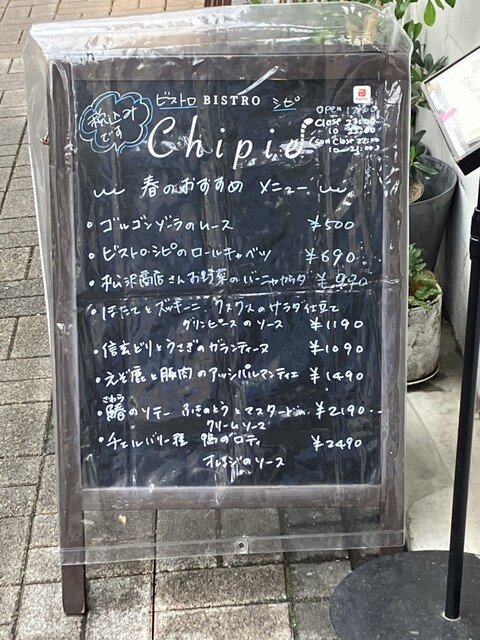 税込み
です
ビストロ BISTRO シピ
Chipie
Open 17:00
Close 23:00
春のおすすめ メニュー
・ゴルゴンゾーラのムース ¥500
・ビストロ・シピのロールキャベツ ¥690
・松沢商店さんお野菜のバーニャカウダ ¥990
・ほたてとズッキーニ、クスクスのサラダ仕立て
グリンピースのソース ¥1190
・信玄どりとうさぎのガランティーヌ ¥1090
・えぞ鹿と豚肉のアッシパルマンティエ ¥1490
さわら
・鰆のソテー ふきのとうとマスタードの ¥2190
クリームソース
・チェルバリー種 鴨のロティ ¥2490
オレンジのソース